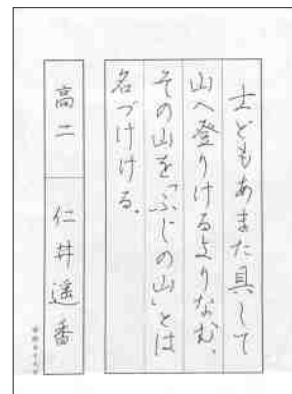 士どもあまた具して
山へ登りけるよりなむ、
その山を「ふじの山」とは
名づけける。
高二 仁井遥香